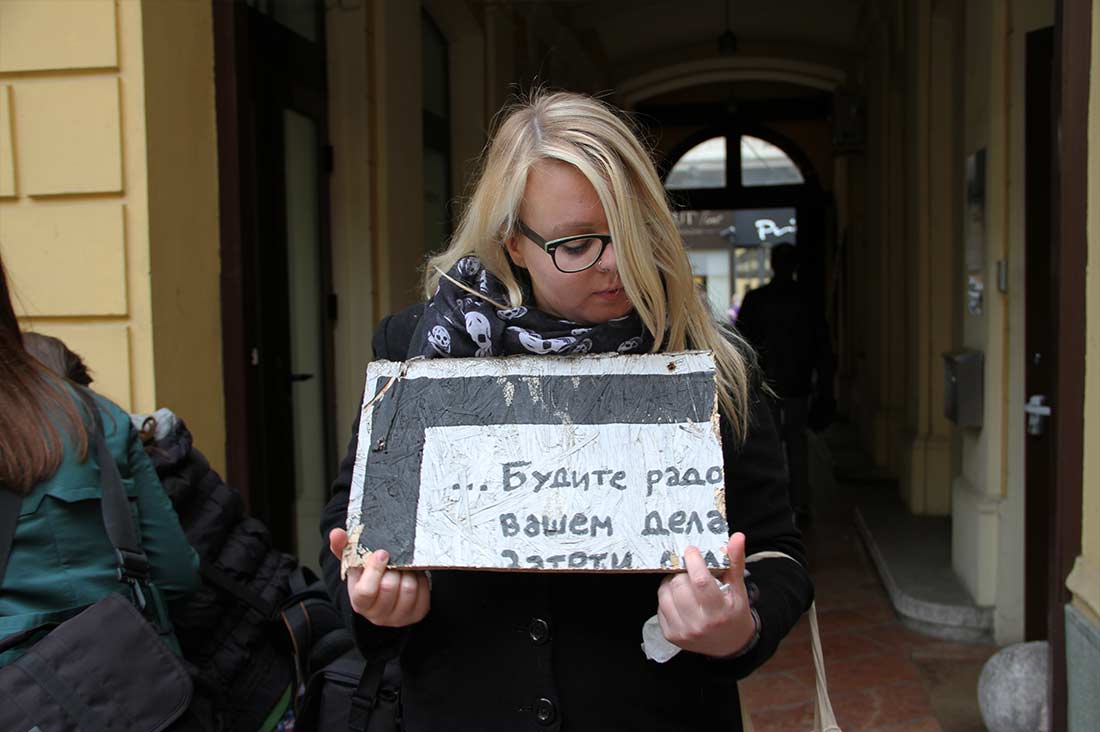 ... Будите радо
вашем дела
затрти